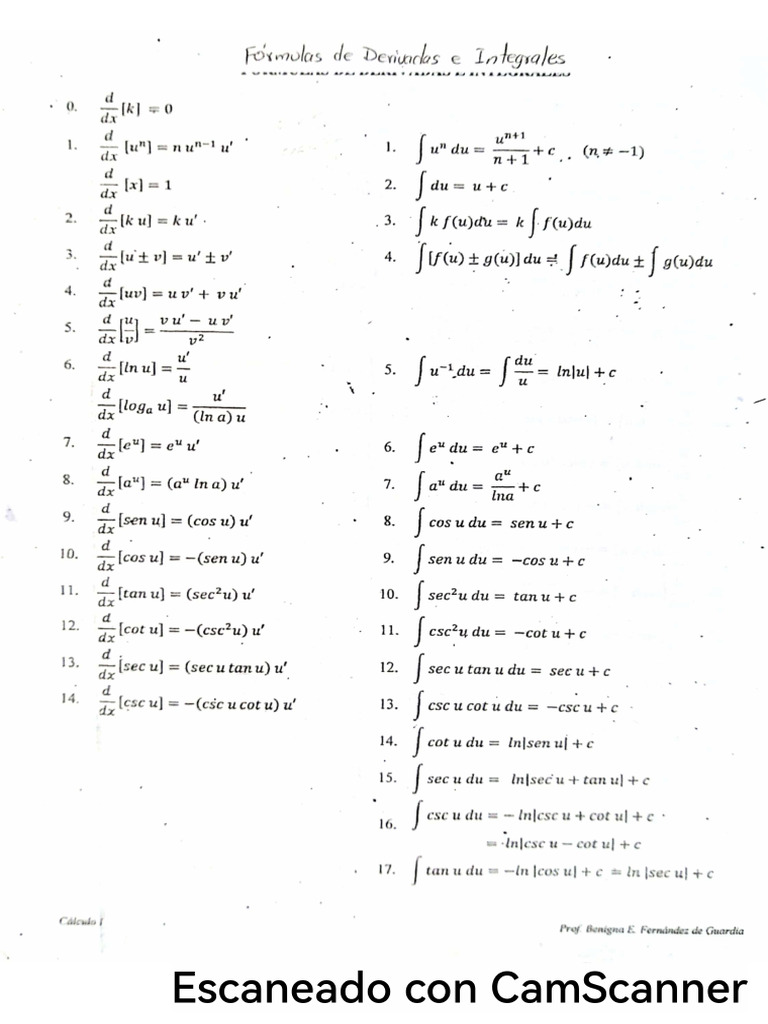 Fórmulas de Derivadas e Integrales
0. d/dx [k] = 0
1. d/dx [uⁿ] = n uⁿ⁻¹ u'
d/dx [x] = 1
2. d/dx [k u] = k u'
3. d/dx [u ± v] = u' ± v'
4. d/dx [uv] = u v' + v u'
5. d/dx [u/v] = (v u' − u v')/v²
6. d/dx [ln u] = u'/u
d/dx [logₐ u] = u'/((ln a) u)
7. d/dx [eᵘ] = eᵘ u'
8. d/dx [aᵘ] = (aᵘ ln a) u'
9. d/dx [sen u] = (cos u) u'
10. d/dx [cos u] = −(sen u) u'
11. d/dx [tan u] = (sec²u) u'
12. d/dx [cot u] = −(csc²u) u'
13. d/dx [sec u] = (sec u tan u) u'
14. d/dx [csc u] = −(csc u cot u) u'
1. ∫ uⁿ du = uⁿ⁺¹/(n + 1) + c (n ≠ −1)
2. ∫ du = u + c
3. ∫ k f(u)du = k ∫ f(u)du
4. ∫ [f(u) ± g(u)] du = ∫ f(u)du ± ∫ g(u)du
5. ∫ u⁻¹ du = ∫ du/u = ln|u| + c
6. ∫ eᵘ du = eᵘ + c
7. ∫ aᵘ du = aᵘ/lna + c
8. ∫ cos u du = sen u + c
9. ∫ sen u du = −cos u + c
10. ∫ sec²u du = tan u + c
11. ∫ csc²u du = −cot u + c
12. ∫ sec u tan u du = sec u + c
13. ∫ csc u cot u du = −csc u + c
14. ∫ cot u du = ln|sen u| + c
15. ∫ sec u du = ln|sec u + tan u| + c
16. ∫ csc u du = − ln|csc u + cot u| + c
= ln|csc u − cot u| + c
17. ∫ tan u du = −ln |cos u| + c = ln |sec u| + c
Cálculo I
Prof. Benigna E. Fernández de Guardia
Escaneado con CamScanner